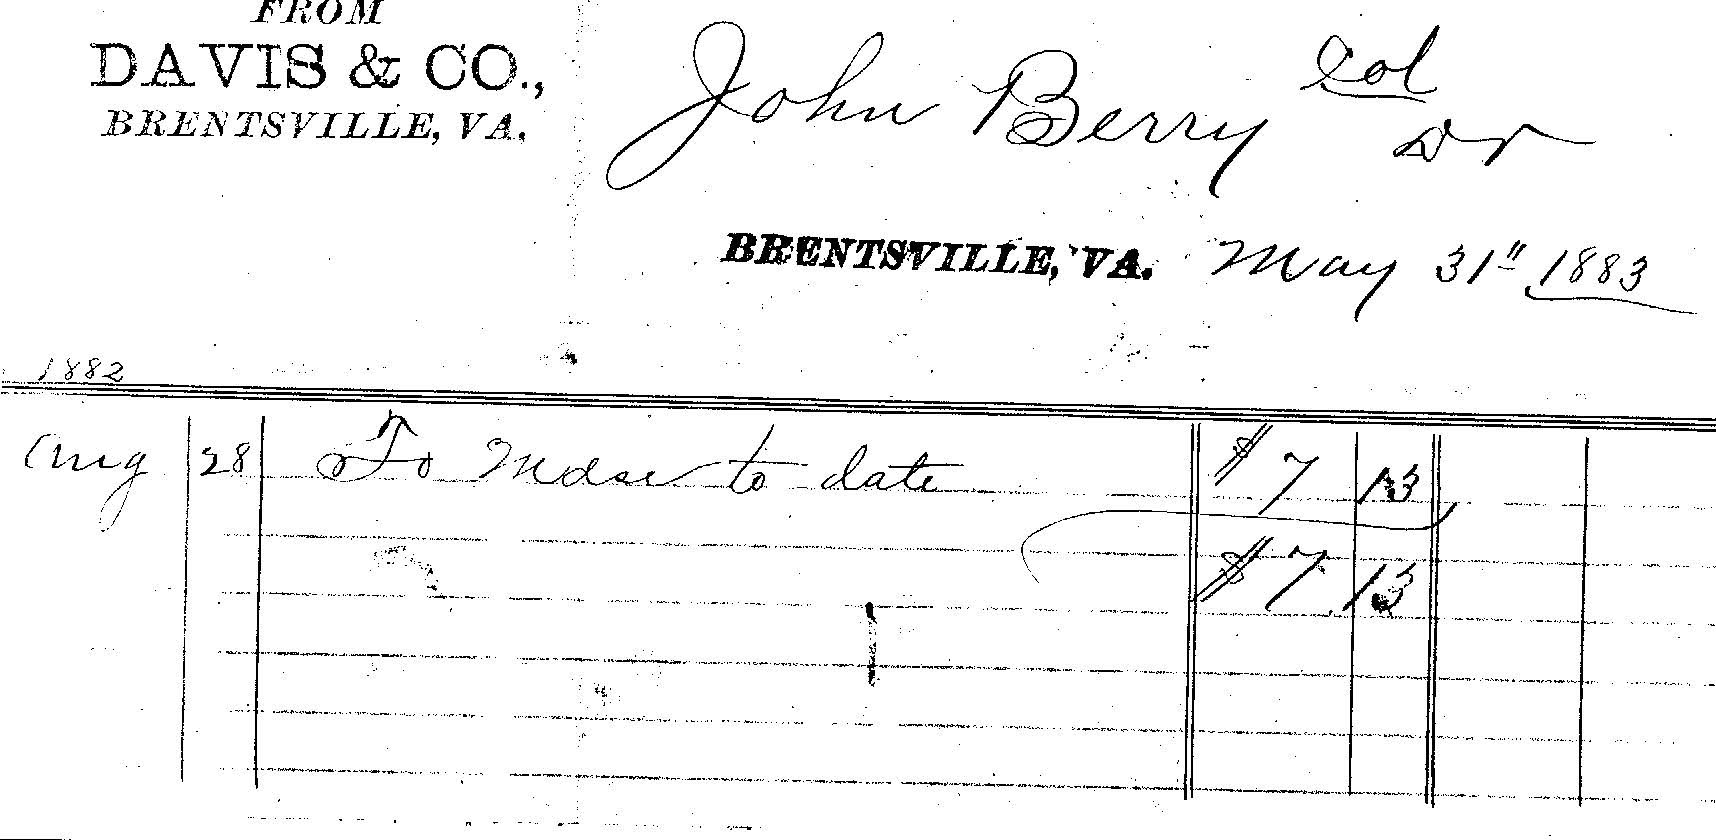 FROM
DAVIS & CO.,
BRENTSVILLE, VA.
John Berry Col
Dr
BRENTSVILLE, VA. May 31" 1883
1882
Aug 28 To Mdse to date $ 7 13
$ 7 13